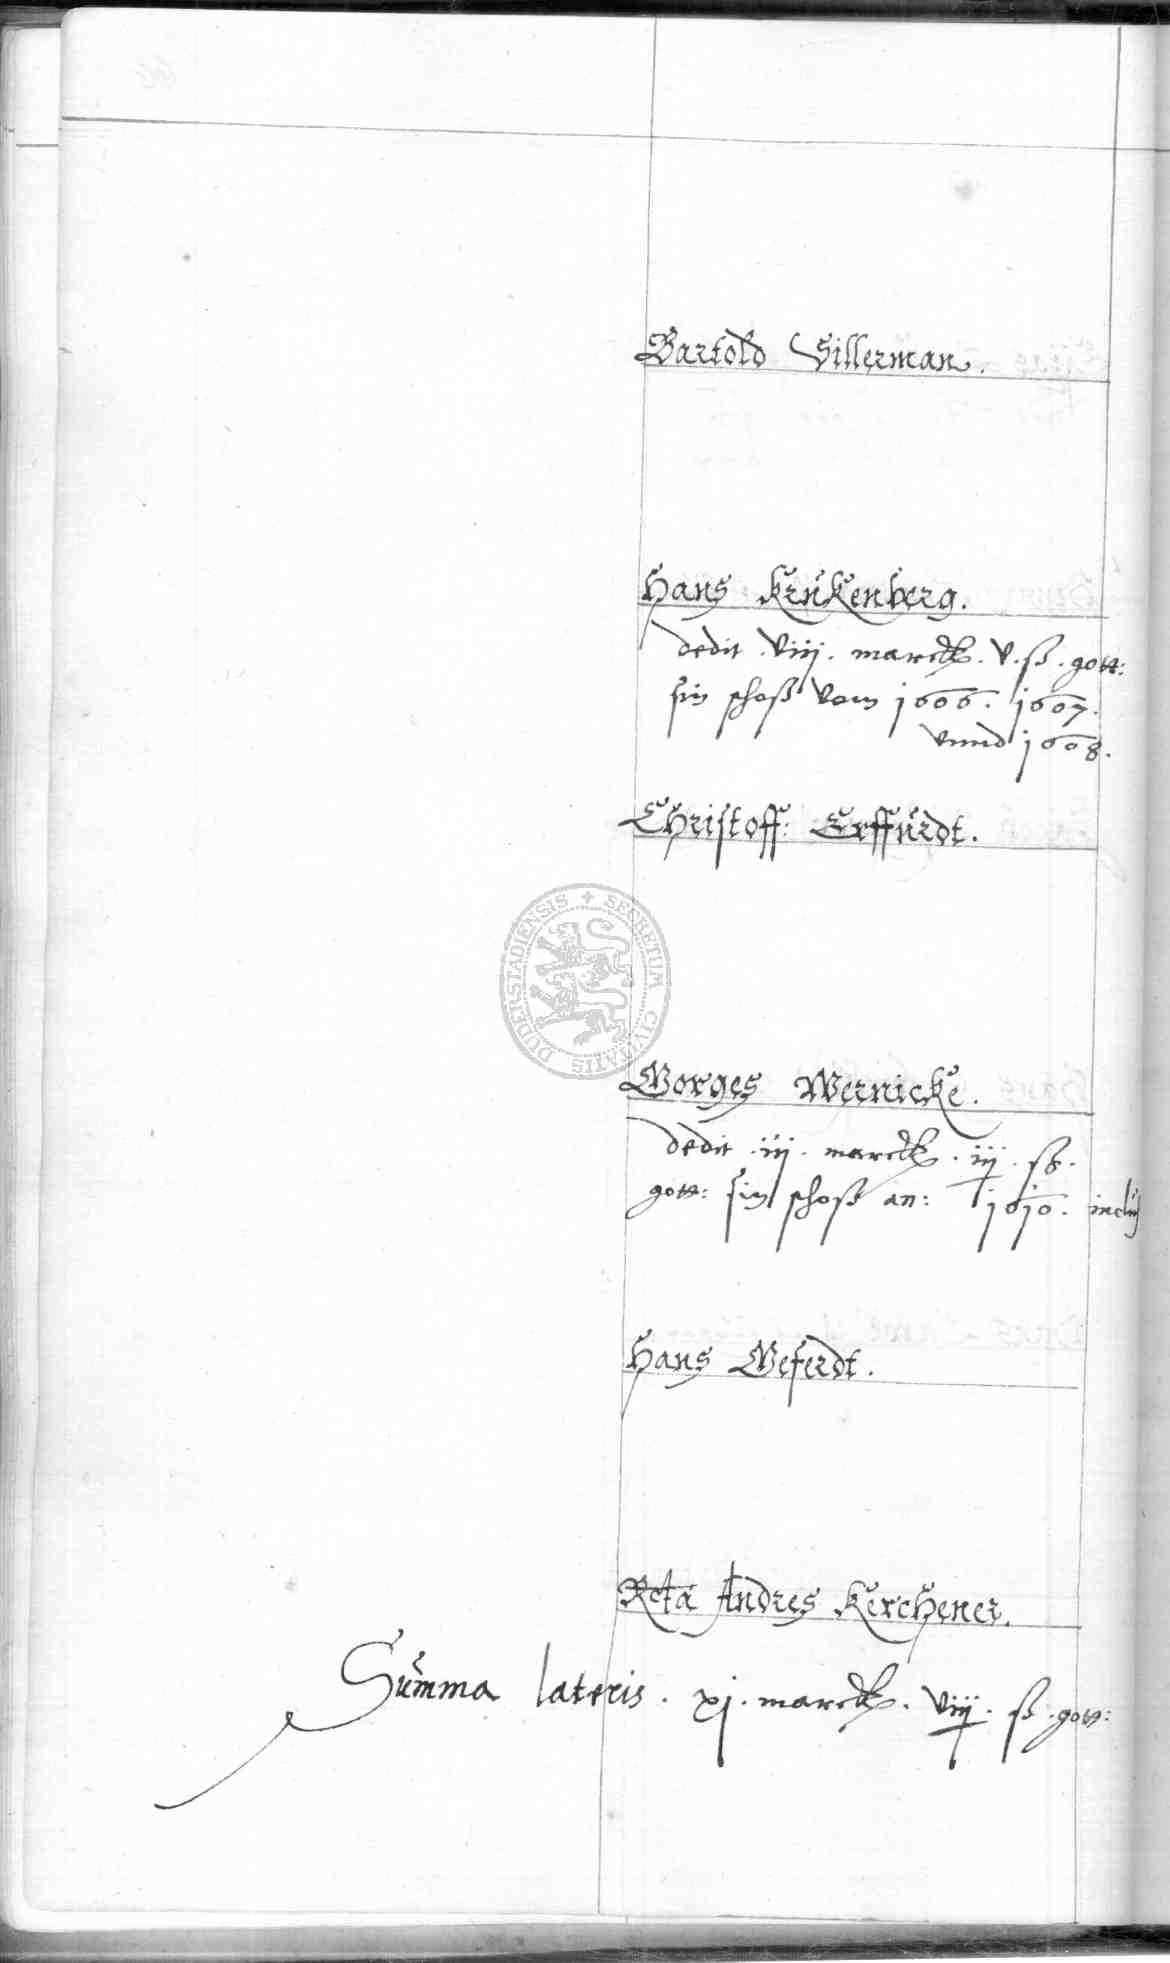 Bartold Sillerman.
Hans Krukenberg.
dedit . viiij . marck . v . ß . gott:
sin schoß vom 1606 . 1607 .
vnnd 1608 .
Christoff: Erffurdt .
SECRETUM CIVITATIS DUDERSTADIENSIS
Gorges Wernicke .
dedit . iij . marck . iij . ß .
gott: sin schoß an: 1610 . inclus
Hans Geferdt .
Rcta Andres Kerchener .
Summa lateris . xj . marck . viij . ß . gott: